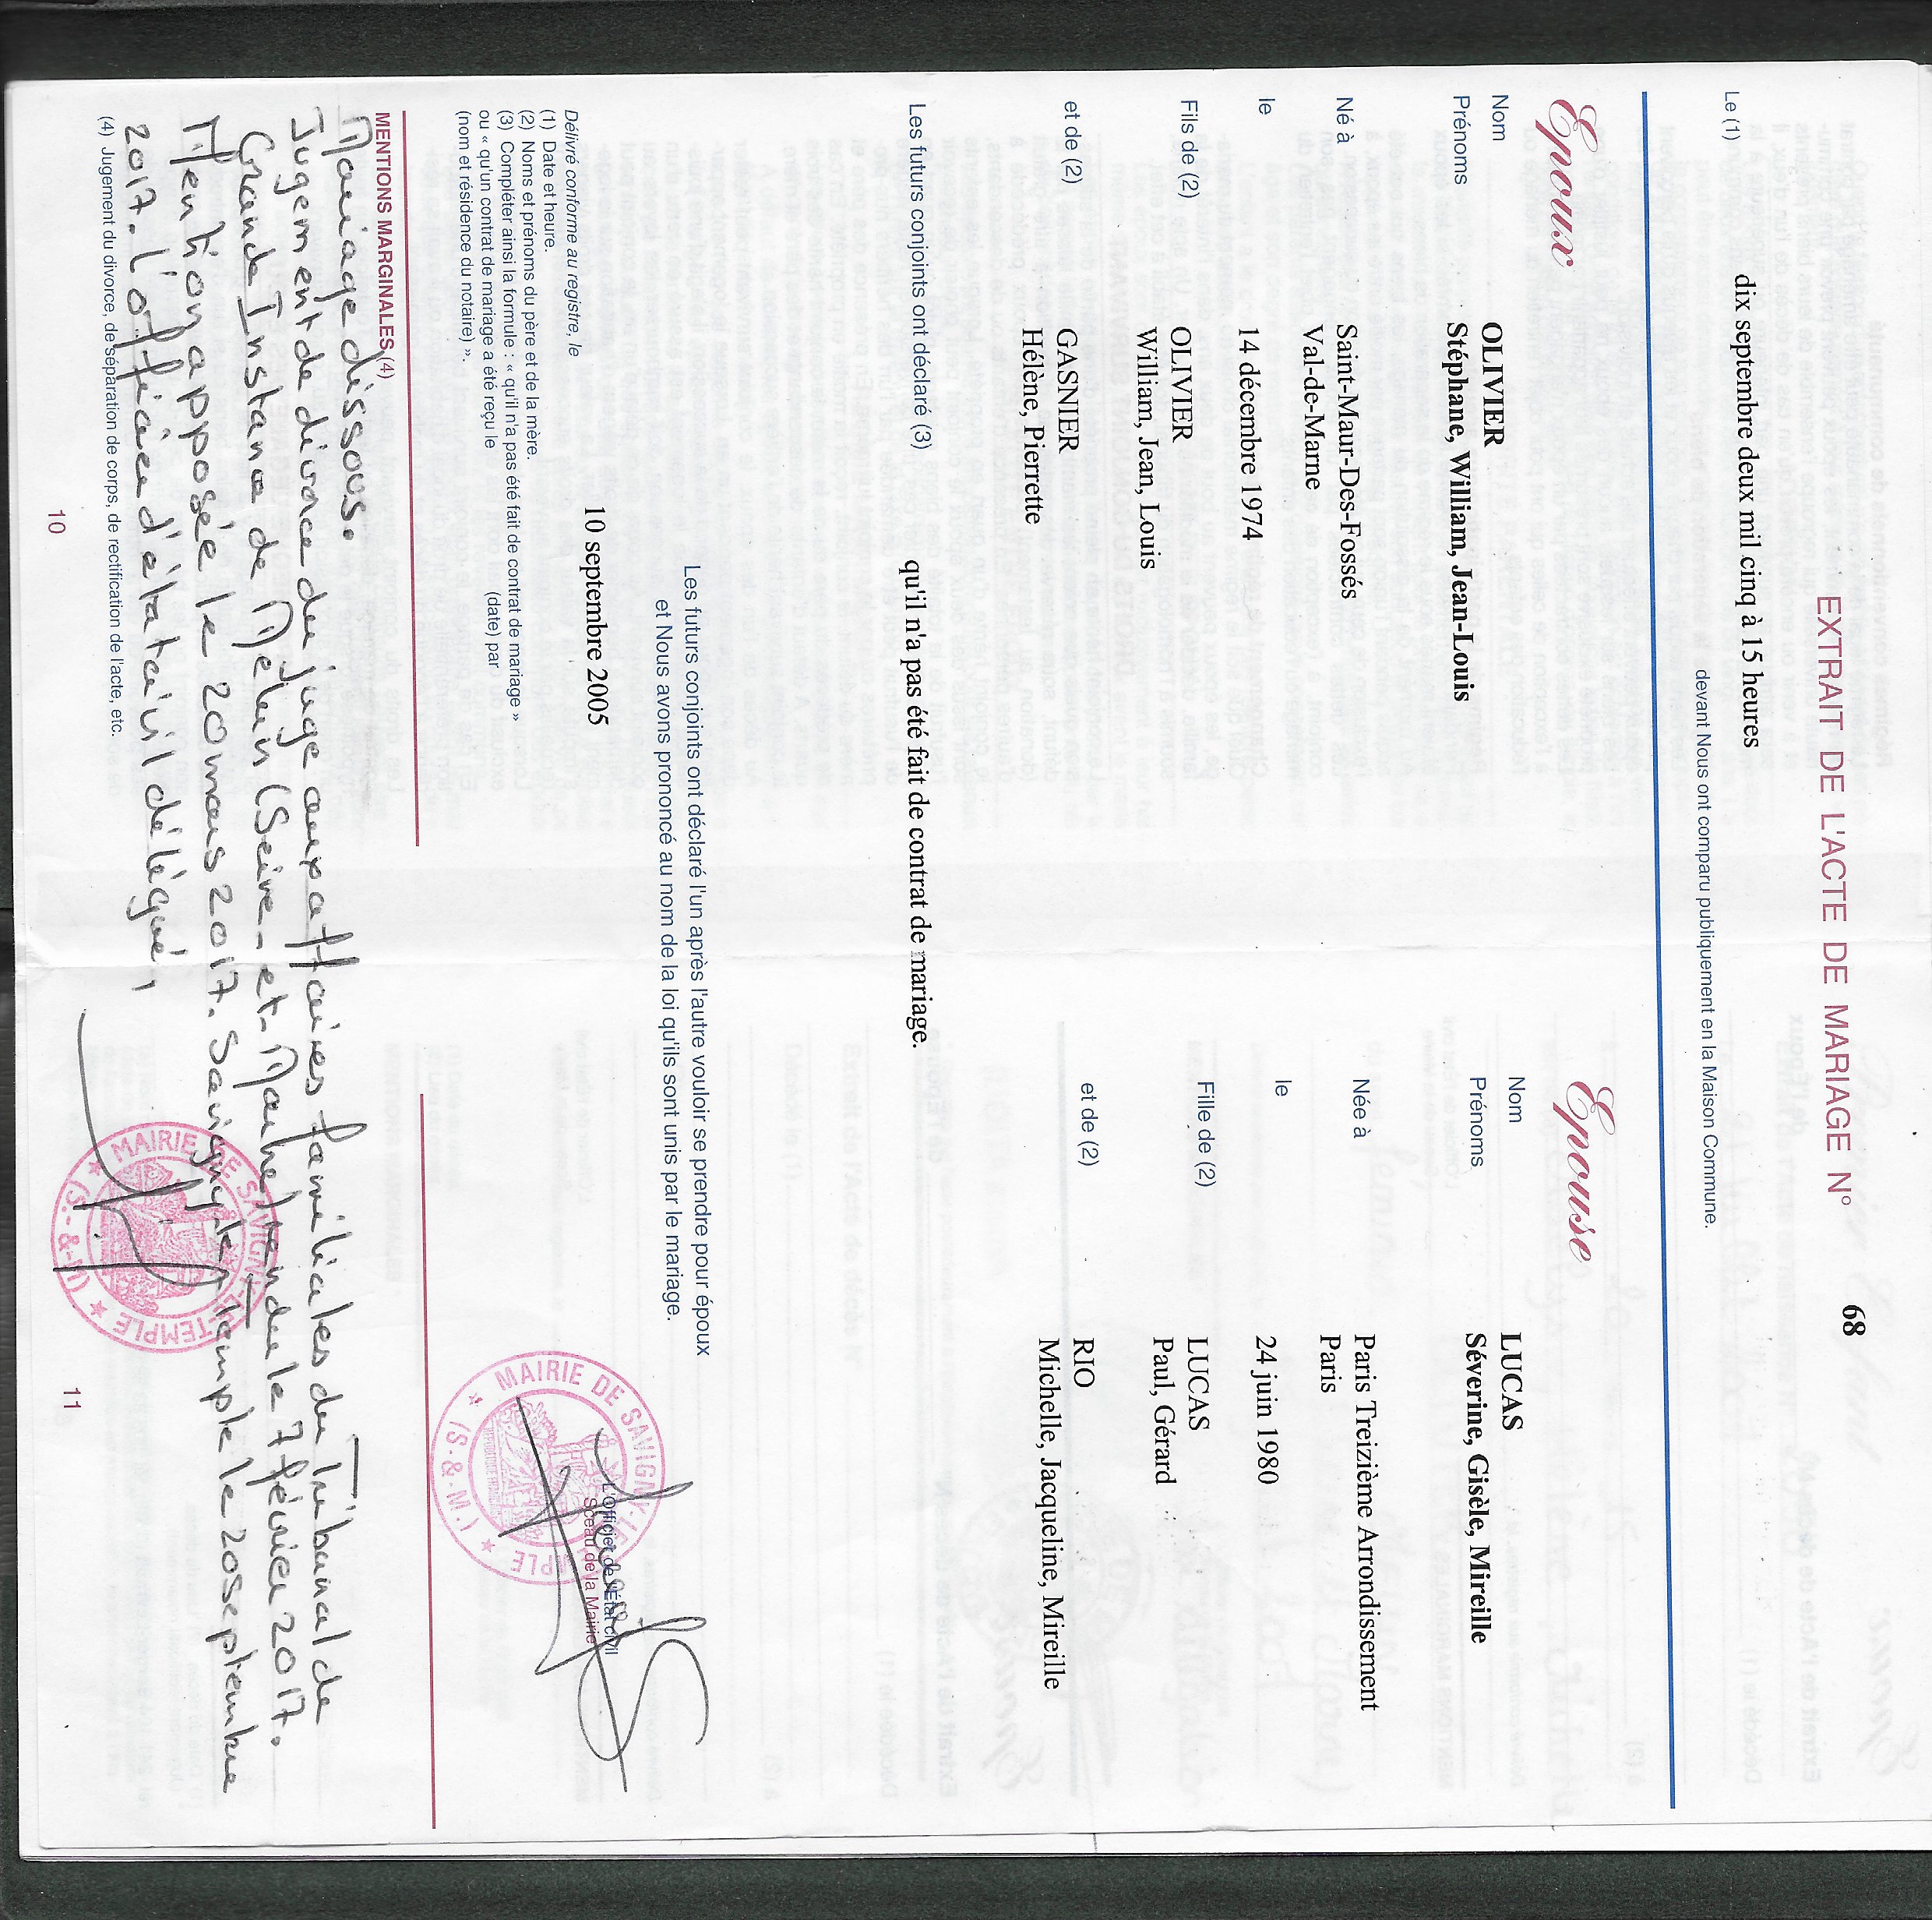 EXTRAIT DE L'ACTE DE MARIAGE N° 68
Le (1) dix septembre deux mil cinq à 15 heures
devant Nous ont comparu publiquement en la Maison Commune.
Epoux
Nom OLIVIER
Prénoms Stéphane, William, Jean-Louis
Né à Saint-Maur-Des-Fossés
Val-de-Marne
le 14 décembre 1974
Fils de (2) OLIVIER
William, Jean, Louis
et de (2) GASNIER
Hélène, Pierrette
Epouse
Nom LUCAS
Prénoms Séverine, Gisèle, Mireille
Née à Paris Treizième Arrondissement
Paris
le 24 juin 1980
Fille de (2) LUCAS
Paul, Gérard
et de (2) RIO
Michelle, Jacqueline, Mireille
Les futurs conjoints ont déclaré (3)
qu'il n'a pas été fait de contrat de mariage.
Les futurs conjoints ont déclaré l'un après l'autre vouloir se prendre pour époux
et Nous avons prononcé au nom de la loi qu'ils sont unis par le mariage.
Délivré conforme au registre, le 10 septembre 2005
(1) Date et heure.
(2) Noms et prénoms du père et de la mère.
(3) Compléter ainsi la formule : « qu'il n'a pas été fait de contrat de mariage »
ou « qu'un contrat de mariage a été reçu le (date) par
(nom et résidence du notaire) ».
L'Officier de l'État civil
Sceau de la Mairie
MAIRIE DE SAVIGNY-LE-TEMPLE
(S.-&-M.)
MENTIONS MARGINALES (4)
Mariage dissous.
Jugement de divorce du juge aux affaires familiales du Tribunal de
Grande Instance de Melun (Seine-et-Marne) rendu le 7 février 2017.
Mention apposée le 20 mars 2017. Savigny-le-Temple le 20 septembre
2017. L'officier d'état civil délégué,
MAIRIE DE SAVIGNY-LE-TEMPLE
(S.-&-M.)
(4) Jugement du divorce, de séparation de corps, de rectification de l'acte, etc.
10
11